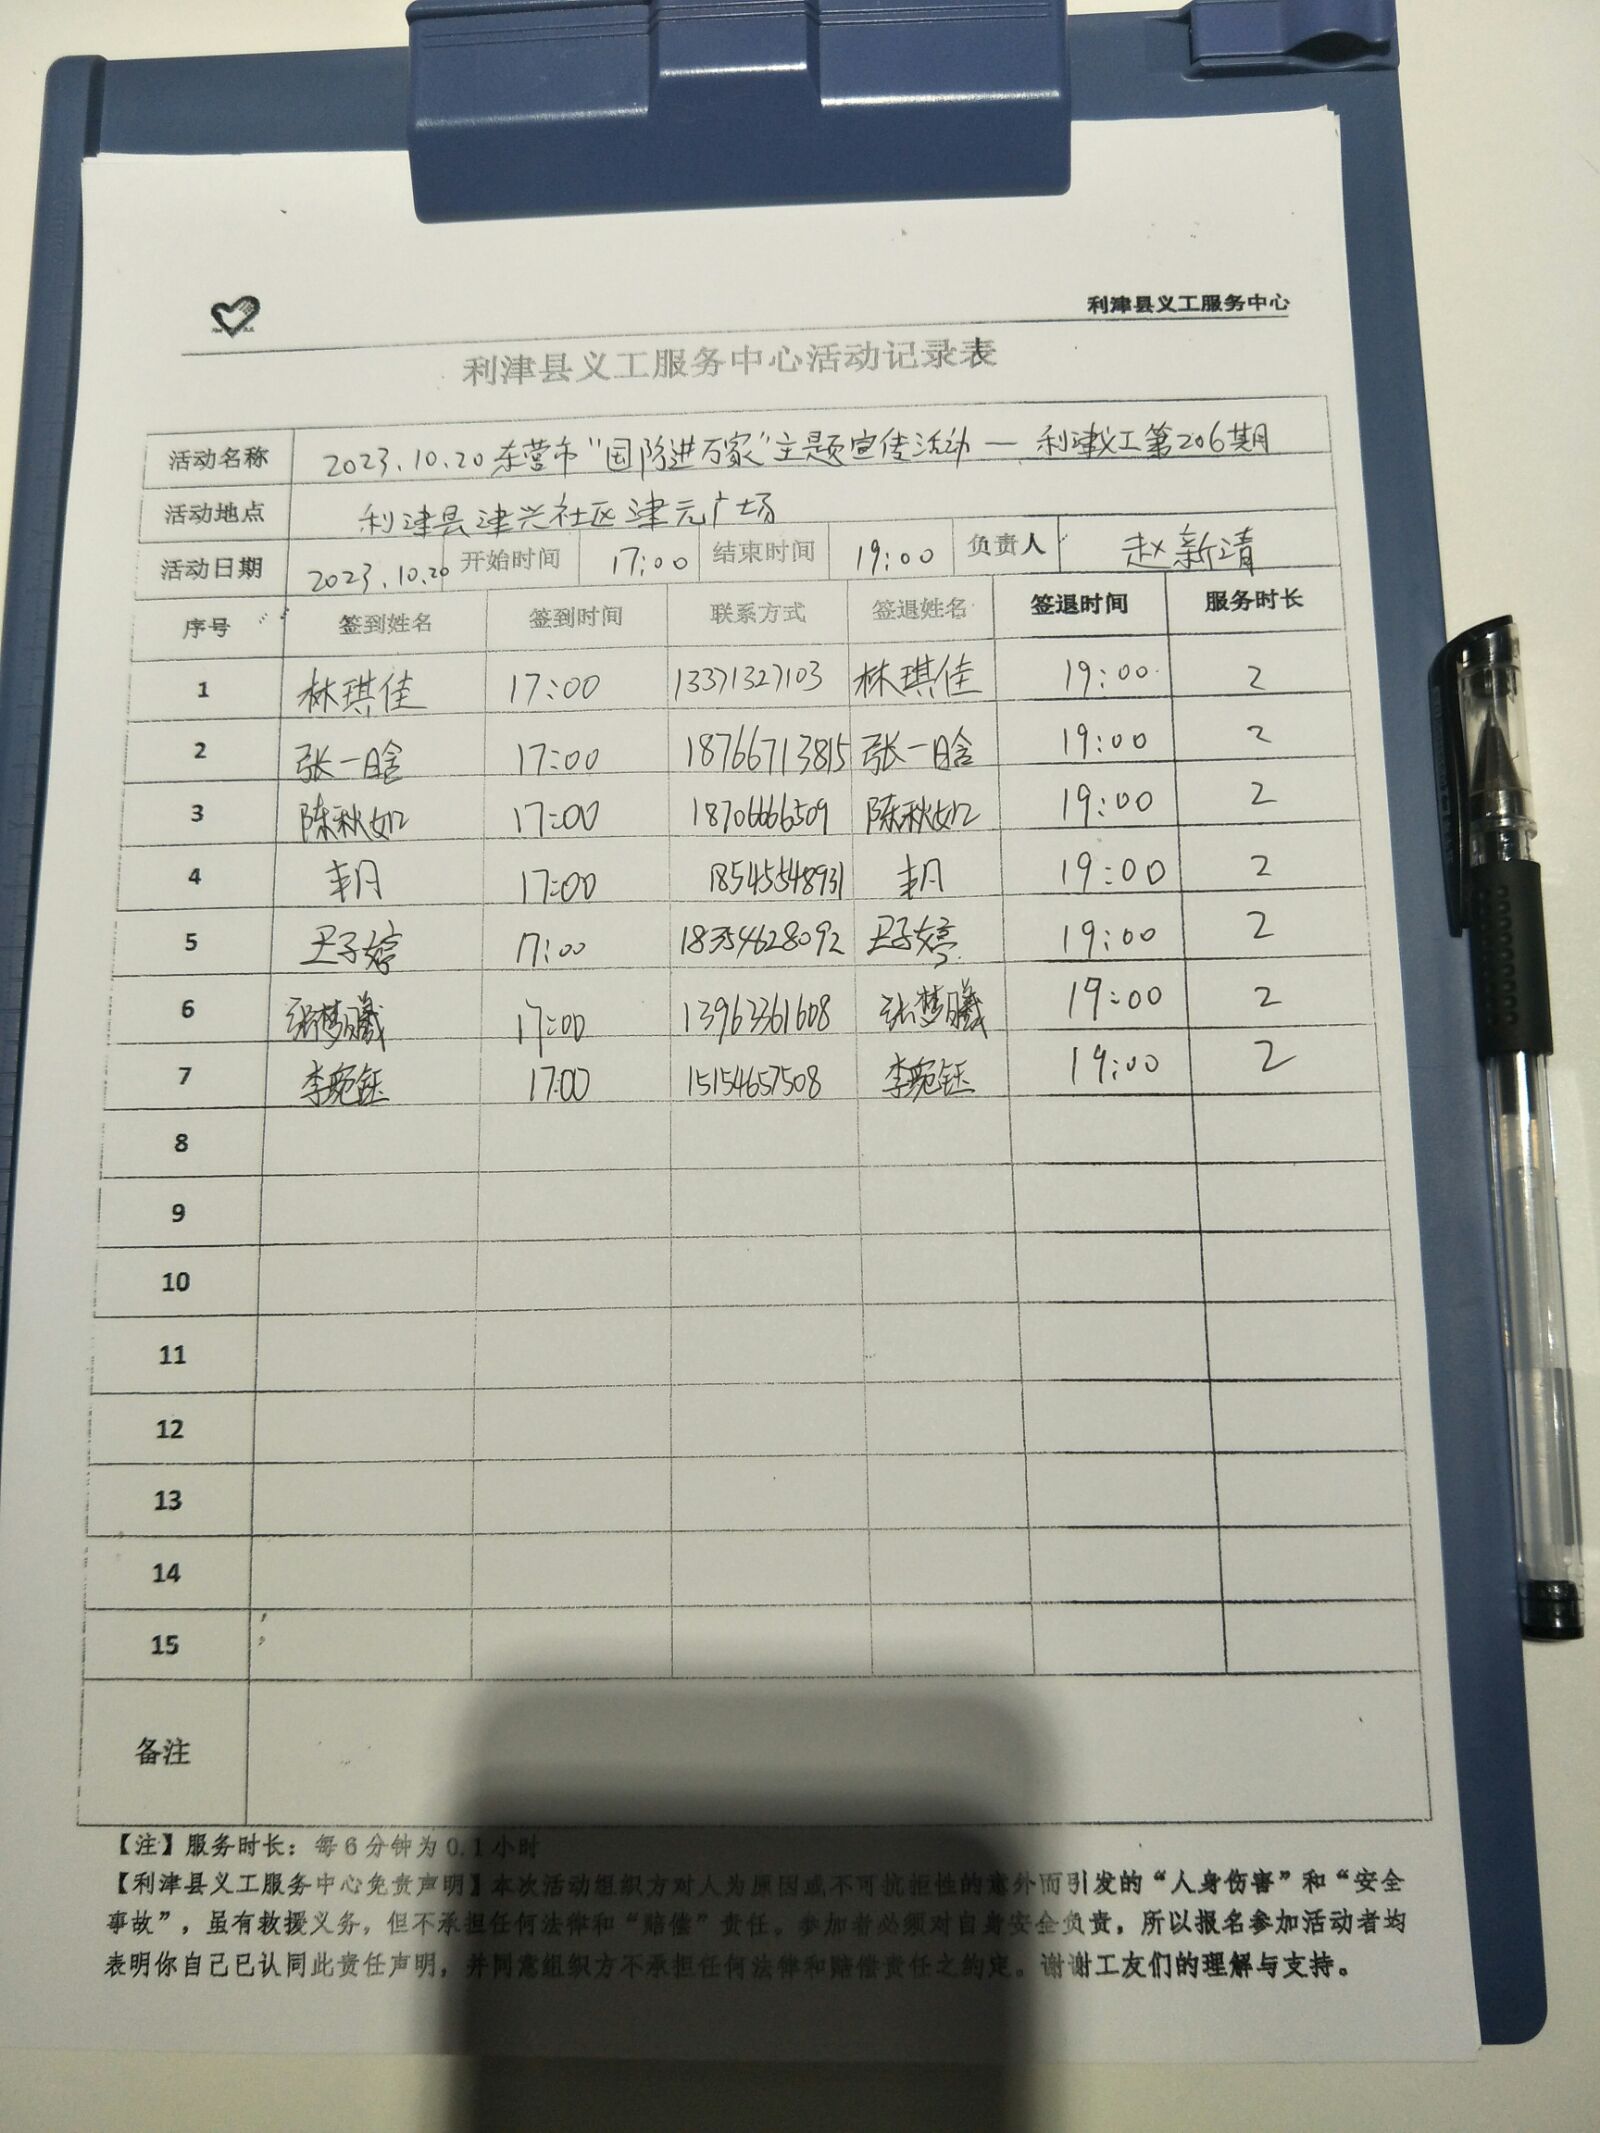 利津县义工服务中心
利津县义工服务中心活动记录表
活动名称 2023.10.20东营市“国防进万家”主题宣传活动—利津义工第206期
活动地点 利津县津兴社区津元广场
活动日期 2023.10.20 开始时间 17:00 结束时间 19:00 负责人 赵新清
序号 签到姓名 签到时间 联系方式 签退姓名 签退时间 服务时长
1 林琪佳 17:00 13371327103 林琪佳 19:00 2
2 张一晗 17:00 18766713815 张一晗 19:00 2
3 陈秋如 17:00 18706666509 陈秋如 19:00 2
4 17:00 18545548931 19:00 2
5 王子婷 17:00 18354628092 王子婷 19:00 2
6 张梦曦 17:00 13963361608 张梦曦 19:00 2
7 李宛钰 17:00 15154657508 李宛钰 19:00 2
8
9
10
11
12
13
14
15
备注
【注】服务时长：每6分钟为0.1小时
【利津县义工服务中心免责声明】本次活动组织方对人为原因或不可抗拒性的意外而引发的“人身伤害”和“安全
事故”，虽有救援义务，但不承担任何法律和“赔偿”责任。参加者必须对自身安全负责，所以报名参加活动者均
表明你自己已认同此责任声明，并同意组织方不承担任何法律和赔偿责任之约定。谢谢工友们的理解与支持。